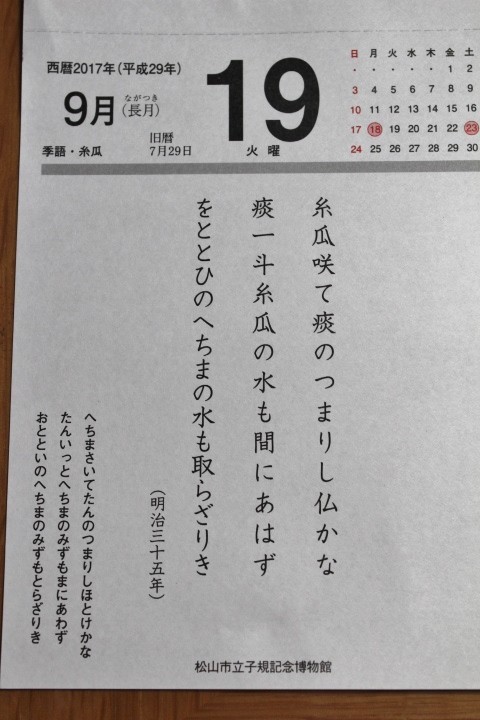 西暦2017年(平成29年)
9月(長月)
ながつき
季語・糸瓜
旧暦
7月29日
19
火曜
日 月 火 水 木 金 土
・ ・ ・ ・ ・ 1 2
3 4 5 6 7 8 9
10 11 12 13 14 15 16
17 18 19 20 21 22 23
24 25 26 27 28 29 30
糸瓜咲て痰のつまりし仏かな
痰一斗糸瓜の水も間にあはず
をととひのへちまの水も取らざりき
(明治三十五年)
へちまさいてたんのつまりしほとけかな
たんいっとへちまのみずもまにあわず
おとといのへちまのみずもとらざりき
松山市立子規記念博物館